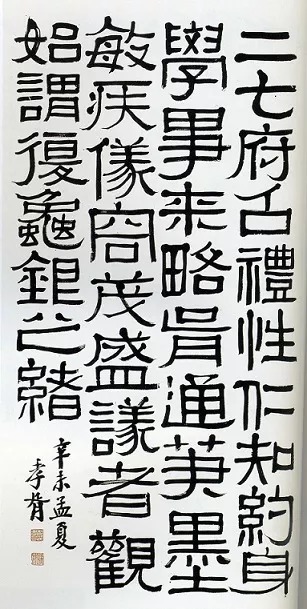 二七府召禮性仁知約身
學事来略通英墨
敏疾儀容茂盛議者觀
始謂復龜銀之緒
辛未孟夏
孝胥